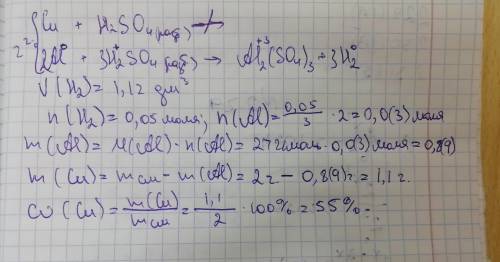 Cu + H₂SO₄(разб) ↛
2Al⁰ + 3H₂⁺SO₄(разб) → Al₂⁺³(SO₄)₃ + 3H₂⁰
V(H₂) = 1,12 дм³
n(H₂) = 0,05 моля; n(Al) = 0,05/3 · 2 = 0,0(3) моля
m(Al) = M(Al) · n(Al) = 27 г/моль · 0,0(3) моля = 0,8(9)
m(Cu) = mсм − m(Al) = 2г − 0,8(9)г = 1,1 г.
ω(Cu) = m(Cu)/mсм = 1,1/2 · 100% = 55%